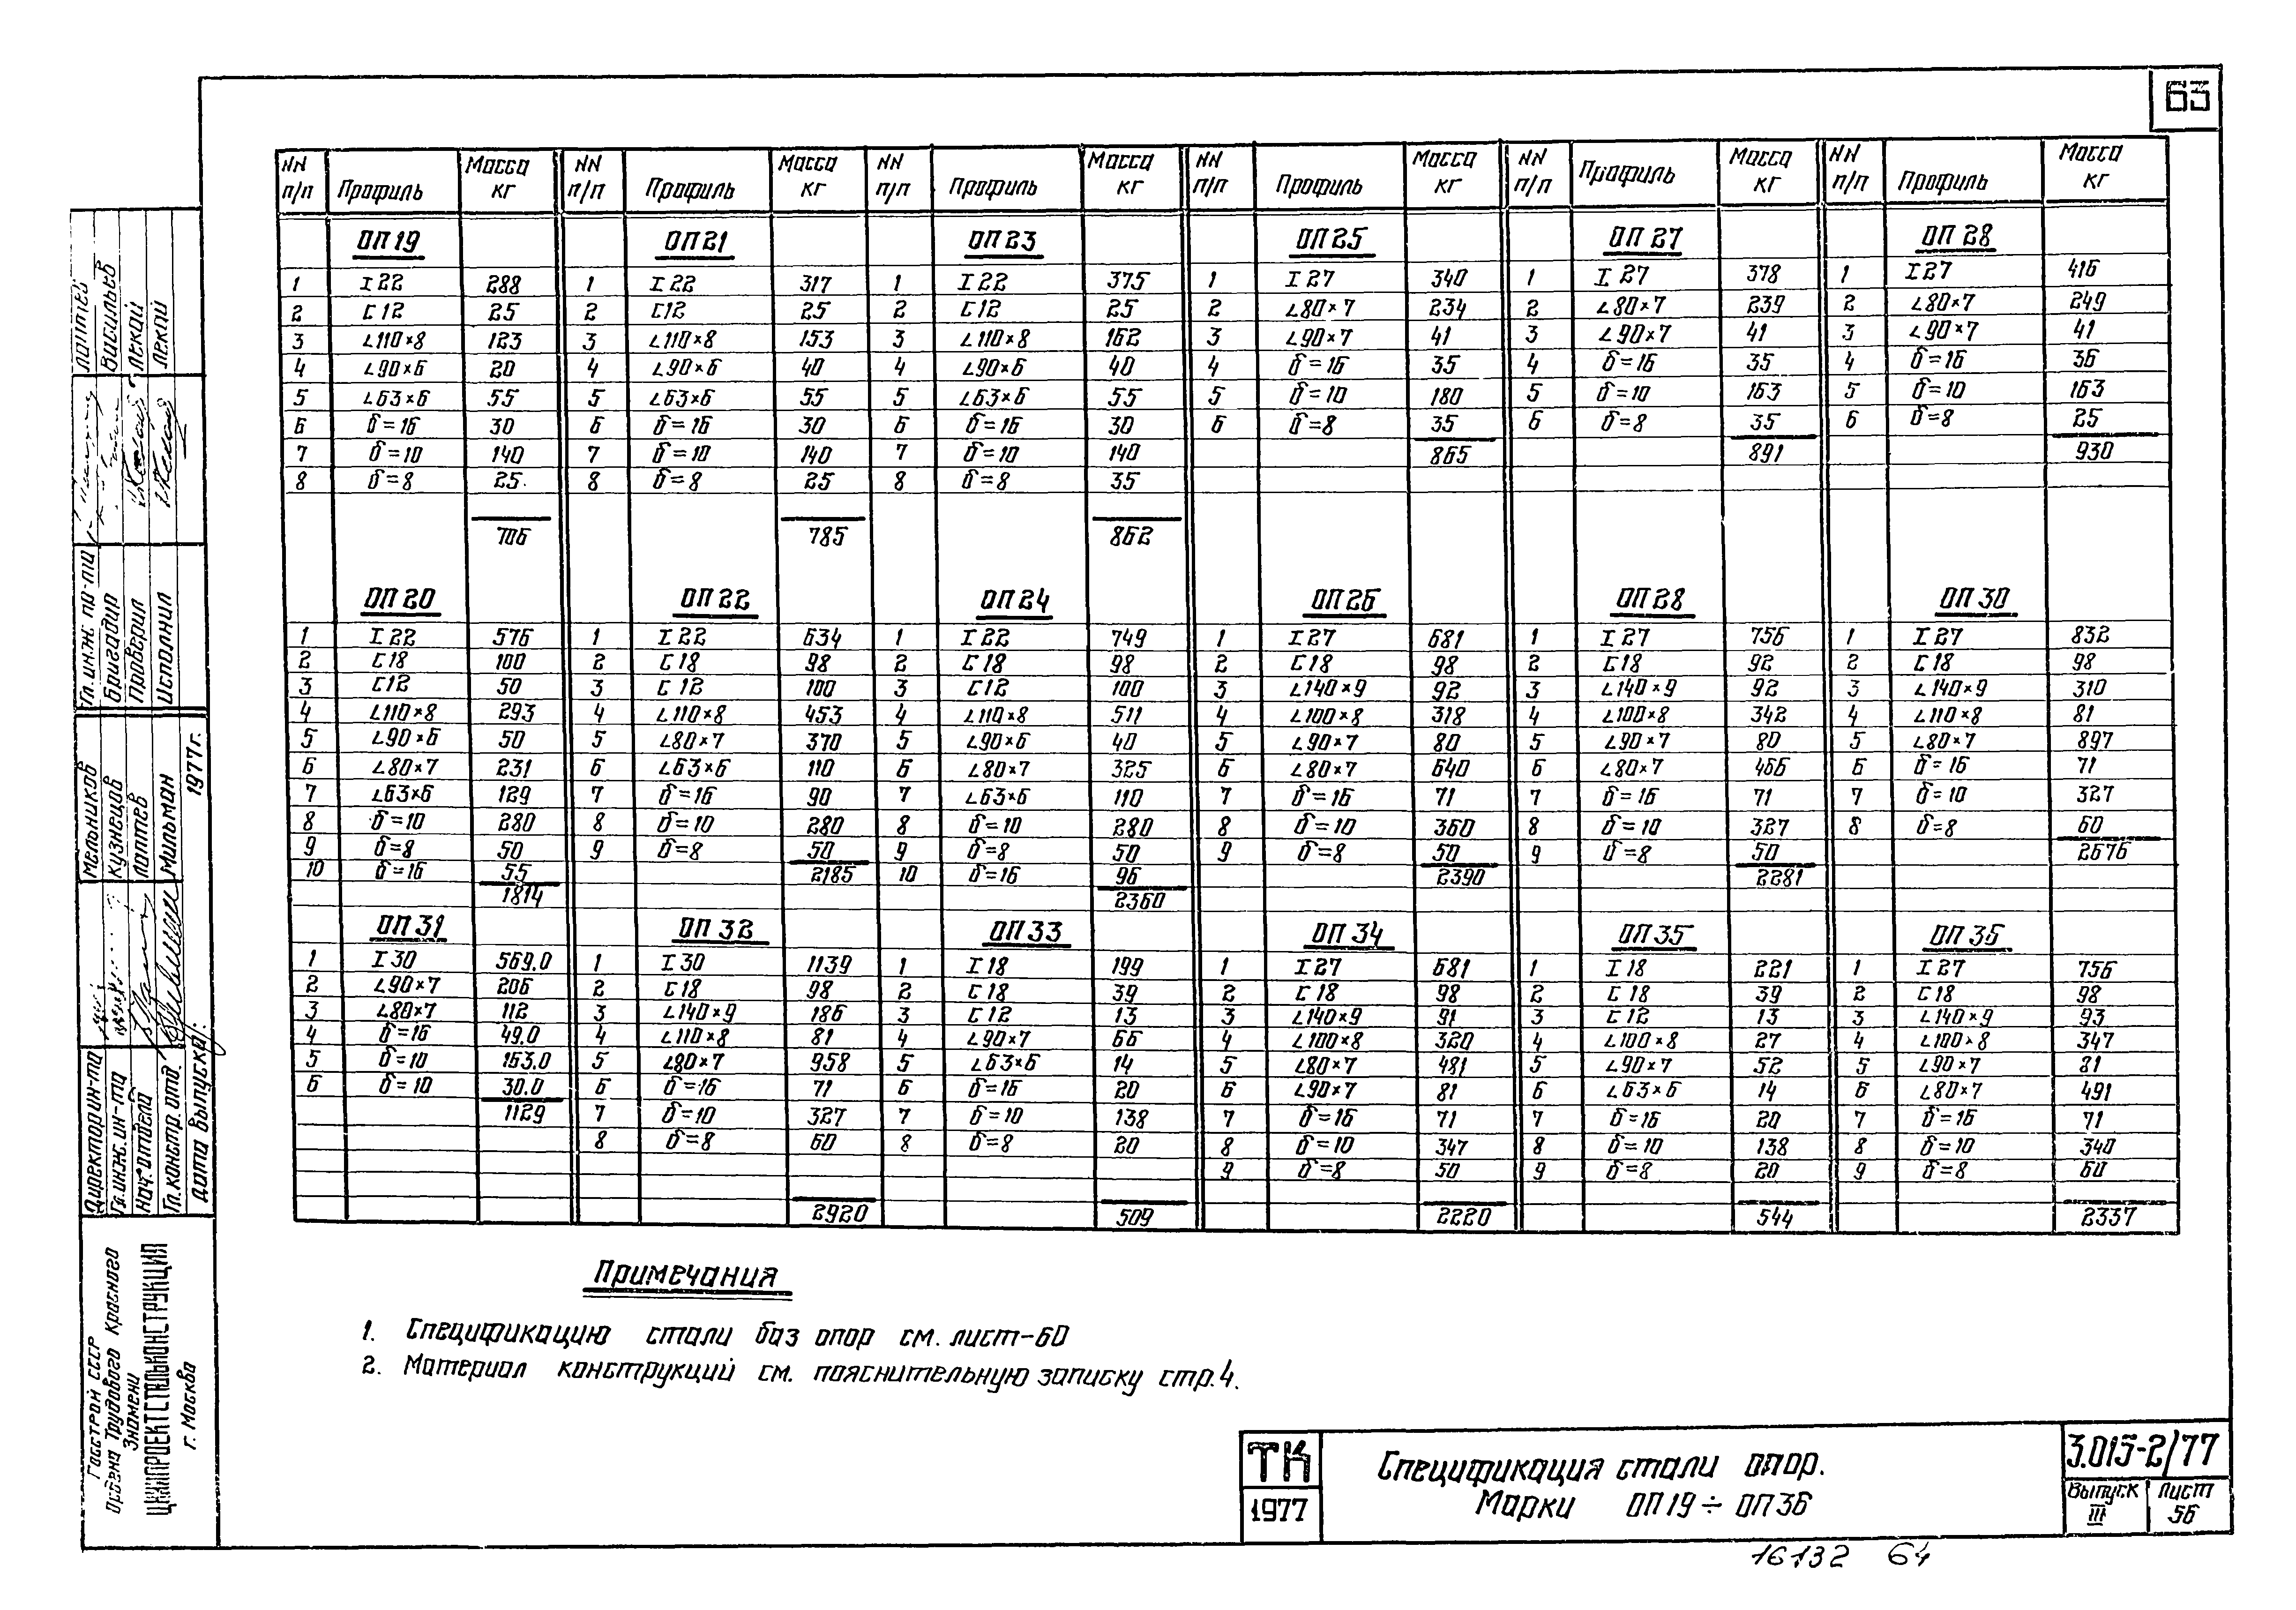 63
NN п/п Профиль Масса кг NN п/п Профиль Масса кг NN п/п Профиль Масса кг NN п/п Профиль Масса кг NN п/п Профиль Масса кг NN п/п Профиль Масса кг
ОП 19 ОП 21 ОП 23 ОП 25 ОП 27 ОП 28
1 I 22 288 1 I 22 317 1 I 22 375 1 I 27 340 1 I 27 378 1 I 27 416
2 С 12 25 2 С 12 25 2 С 12 25 2 ∟80×7 234 2 ∟80×7 239 2 ∟80×7 249
3 ∟110×8 123 3 ∟110×8 153 3 ∟110×8 162 3 ∟90×7 41 3 ∟90×7 41 3 ∟90×7 41
4 ∟90×6 20 4 ∟90×6 40 4 ∟90×6 40 4 δ=16 35 4 δ=16 35 4 δ=16 36
5 ∟63×6 55 5 ∟63×6 55 5 ∟63×6 55 5 δ=10 180 5 δ=10 163 5 δ=10 163
6 δ=16 30 6 δ=16 30 6 δ=16 30 6 δ=8 35 6 δ=8 35 6 δ=8 25
7 δ=10 140 7 δ=10 140 7 δ=10 140 865 891 930
8 δ=8 25 8 δ=8 25 8 δ=8 35
706 785 862
ОП 20 ОП 22 ОП 24 ОП 26 ОП 28 ОП 30
1 I 22 576 1 I 22 634 1 I 22 749 1 I 27 681 1 I 27 756 1 I 27 832
2 С 18 100 2 С 18 98 2 С 18 98 2 С 18 98 2 С 18 92 2 С 18 98
3 С 12 50 3 С 12 100 3 С 12 100 3 ∟140×9 92 3 ∟140×9 92 3 ∟140×9 310
4 ∟110×8 293 4 ∟110×8 453 4 ∟110×8 511 4 ∟100×8 318 4 ∟100×8 342 4 ∟110×8 81
5 ∟90×6 50 5 ∟80×7 370 5 ∟90×6 40 5 ∟90×7 80 5 ∟90×7 80 5 ∟80×7 897
6 ∟80×7 231 6 ∟63×6 110 6 ∟80×7 325 6 ∟80×7 640 6 ∟80×7 466 6 δ=16 71
7 ∟63×6 129 7 δ=16 90 7 ∟63×6 110 7 δ=16 71 7 δ=16 71 7 δ=10 327
8 δ=10 280 8 δ=10 280 8 δ=10 280 8 δ=10 360 8 δ=10 327 8 δ=8 60
9 δ=8 50 9 δ=8 50 9 δ=8 50 9 δ=8 50 9 δ=8 50 2676
10 δ=16 55 2185 10 δ=16 96 2390 2281
1814 2360
ОП 31 ОП 32 ОП 33 ОП 34 ОП 35 ОП 36
1 I 30 569.0 1 I 30 1139 1 I 18 199 1 I 27 681 1 I 18 221 1 I 27 756
2 ∟90×7 206 2 С 18 98 2 С 18 39 2 С 18 98 2 С 18 39 2 С 18 98
3 ∟80×7 112 3 ∟140×9 186 3 С 12 13 3 ∟140×9 91 3 С 12 13 3 ∟140×9 93
4 δ=16 49.0 4 ∟110×8 81 4 ∟90×7 66 4 ∟100×8 320 4 ∟100×8 27 4 ∟100×8 347
5 δ=10 163.0 5 ∟80×7 958 5 ∟63×6 14 5 ∟80×7 481 5 ∟90×7 52 5 ∟90×7 81
6 δ=10 30.0 6 δ=16 71 6 δ=16 20 6 ∟90×7 81 6 ∟63×6 14 6 ∟80×7 491
1129 7 δ=10 327 7 δ=10 138 7 δ=16 71 7 δ=16 20 7 δ=16 71
8 δ=8 60 8 δ=8 20 8 δ=10 347 8 δ=10 138 8 δ=10 340
9 δ=8 50 9 δ=8 20 9 δ=8 60
2920 509 2220 544 2337
Примечания
1. Спецификацию стали баз опор см. лист-60
2. Материал конструкций см. пояснительную записку стр.4.
ТК
1977
Спецификация стали опор.
Марки ОП 19 ÷ ОП 36
3.015-2/77
Выпуск III
Лист 56
16132 64
Гл. инж. пр-та Лаптев
Бригадир Васильев
Проверил Лекай
Исполнил Лекай
Директор ин-та Мельников
Гл. инж. ин-та Кузнецов
Нач. отдела Лаптев
Гл. констр. отд. Мильман
Дата выпуска: 1977г.
Госстрой СССР
Ордена Трудового Красного
Знамени
ЦНИИПРОЕКТСТАЛЬКОНСТРУКЦИЯ
г. Москва